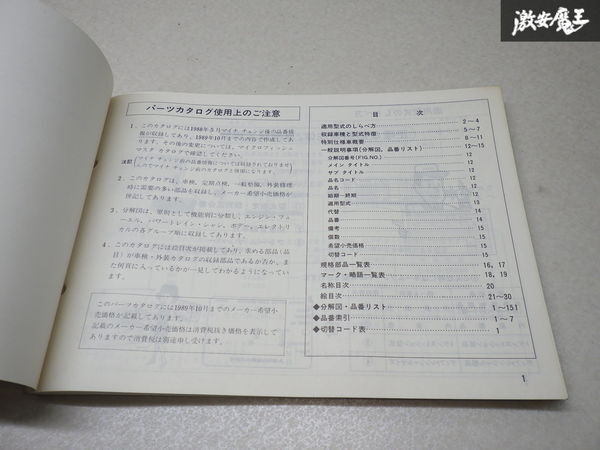 激安魔王
パーツカタログ使用上のご注意
1．このカタログには1988年5月マイナ チェンジ後の品番情
報が収録してあり、1989年10月までの内容で作成してあ
ります。その後の変更については、マイクロフィッシュ
マスタ カタログで確認してください。
注記
マイナ チェンジ前の品番情報については収録されておりませ
んのでマイナ チェンジ前のカタログと併用ください。
2．このカタログは、車検、定期点検、一般整備、外装修理
時に需要の多い部品を収録し、メーカー希望小売価格が
併記してあります。
3．分解図は、原則として機能別に分類し、エンジン・フュ
ーエル、パワートレイン・シャシ、ボデー、エレクトリ
カルの各グループ順に収録してあります。
4．このカタログには絵目次が掲載してあり、求める部品(品
目)が車検・外装カタログの収録部品であるか否か、ま
た何頁に入っているかが一見してわかるようになってい
ます。
このパーツカタログには1989年10月までのメーカー希望小
売価格が記載してあります。
記載のメーカー希望小売価格は消費税抜き価格を表示して
ありますので消費税は別途申し受けます。
目 次
適用型式のしらべ方 2～4
収録車種と型式特徴 5～7
特別仕様車概要 8～11
一般説明事項(分解図、品番リスト) 12～15
分解図番号(FIG.NO.) 12
メイン タイトル 12
サブ タイトル 12
品名コード 12
品名 12
始期―終期 12
適用型式 13
代替 14
品番 14
備考 15
個数 15
希望小売価格 15
切替コード 15
規格部品一覧表 16, 17
マーク・略語一覧表 18, 19
名称目次 20
絵目次 21～30
◆分解図・品番リスト 1～151
◆品番索引 1～7
◆切替コード表 1
1